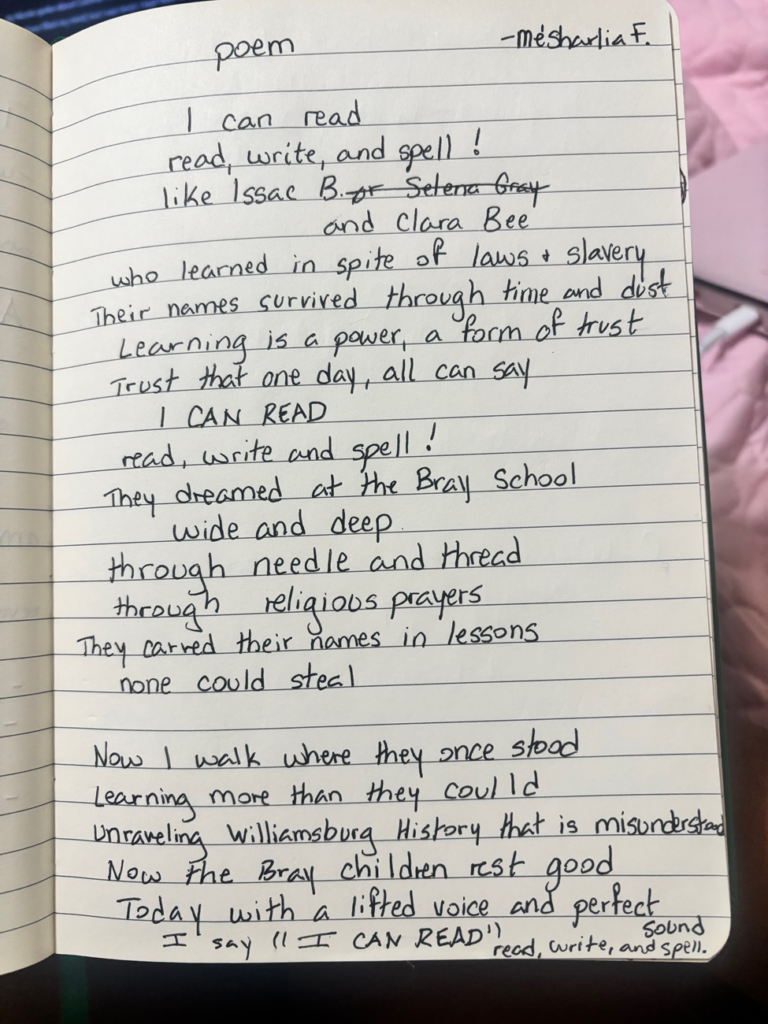 poem
-Mésharlia F.
I can read
read, write, and spell !
like Issac B. or Selena Gray
and Clara Bee
who learned in spite of laws & slavery
Their names survived through time and dust
Learning is a power, a form of trust
Trust that one day, all can say
I CAN READ
read, write and spell !
They dreamed at the Bray School
wide and deep
through needle and thread
through religious prayers
They carved their names in lessons
none could steal
Now I walk where they once stood
Learning more than they coulld
Unraveling Williamsburg History that is misunderstood
Now the Bray children rest good
Today with a lifted voice and perfect
sound
I say "I CAN READ"
read, write, and spell.